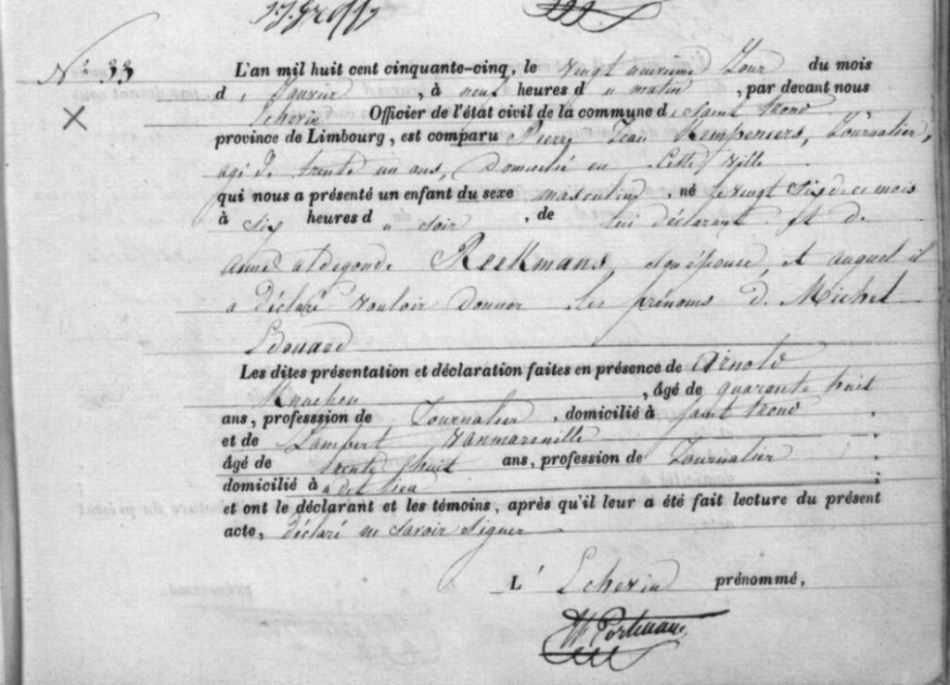 N° 33
L'an mil huit cent cinquante-cinq, le vingt neuvieme Jour du mois
d Janvier, à neuf heures d u matin, par devant nous
Echevin Officier de l'état civil de la commune de Saint Trond
province de Limbourg, est comparu Pierre Jean Kempeners, Journalier,
agé de trente un ans, Domicilié en Cette Ville
qui nous a présenté un enfant du sexe masculin, né le vingt Six de ce mois
à Six heures d u soir, de lui déclarant et de
Anne aldegonde Reekmans, son épouse, et auquel il
a Déclaré vouloir donner les prénoms de Michel
Edouard
Les dites présentation et déclaration faites en présence de Arnold
Knuchen, âgé de quarante huit
ans, professsion de Journalier, domicilié à Saint Trond
et de Lambert Vanmarenille
âgé de trente huit ans, profession de Journalier
domicilié à a dit lieu
et ont le déclarant et les témoins, après qu'il leur a été fait lecture du présent
acte, déclaré ne Savoir Signer
L' Echevin prénommé,